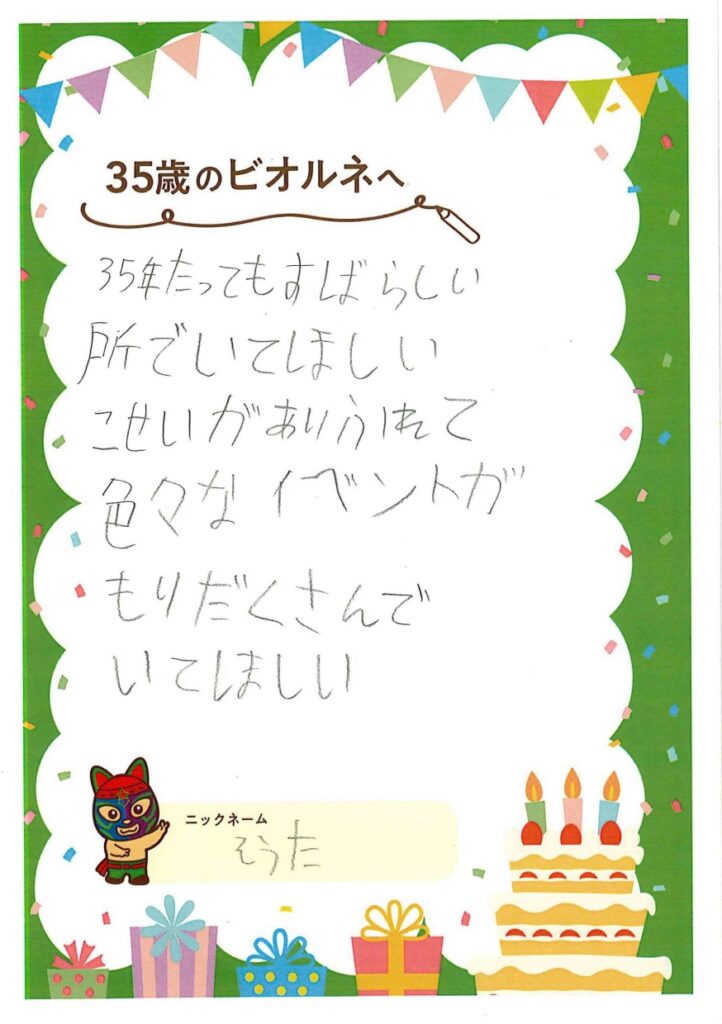 35歳のビオルネへ
35年たってもすばらしい
所でいてほしい
こせいがありふれて
色々なイベントが
もりだくさんで
いてほしい
ニックネーム
そうた